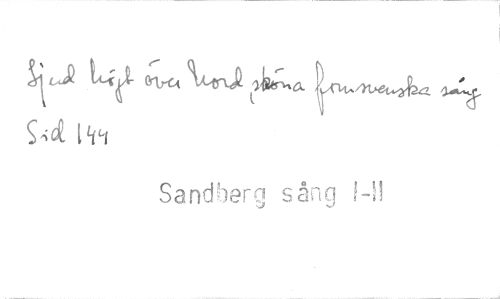 Ljud högt över Nord, sköna fornsvenska sång
Sid 144
Sandberg sång I-II